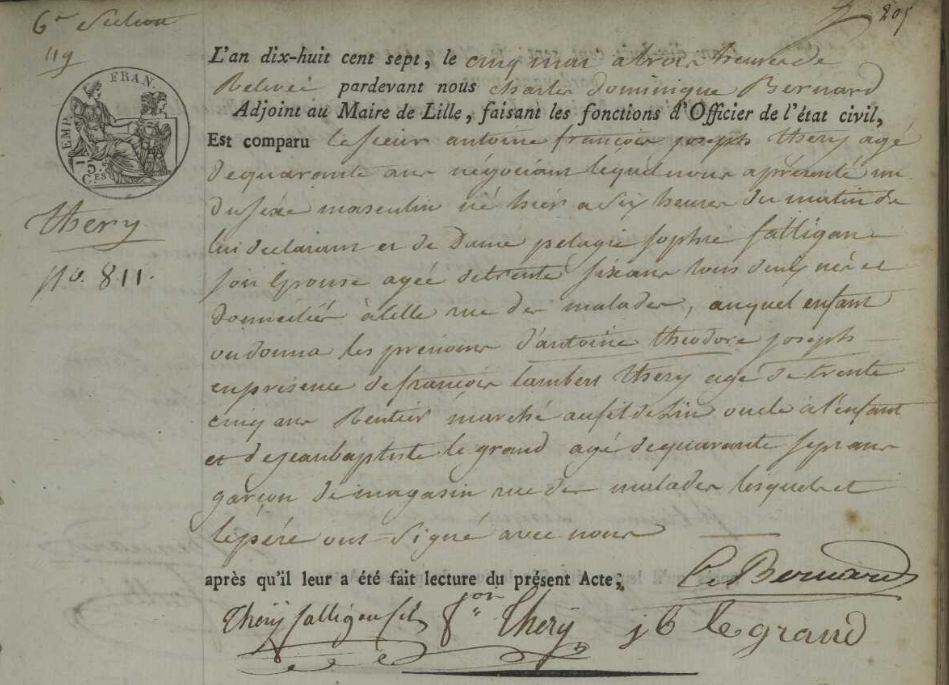 6e Section
119
205
EMP. FRAN.
75.
CES
Thery
No. 811.
L'an dix-huit cent sept, le cinq mai a trois heures de
Relevée pardevant nous Charles Dominique Bernard
Adjoint au Maire de Lille, faisant les fonctions d'Officier de l'état civil,
Est comparu le sieur antoine françois joseph thery agé
de quarante ans négociant lequel nous a présenté un
du sexe masculin né hier a six heures du matin de
lui declarant et de Dame pelagie sophie fatligan
son Epouse agée de trente six ans tous deux nés et
domiciliés à lille rue des malades, auquel enfant
on donna les prenoms d'antoine theodore joseph
en présence de françois lambert thery agé de trente
cinq ans Rentier marché au fil de Lin oncle à l'enfant
et de jean baptiste le grand agé de quarante sept ans
garçon de magasin rue des malades lesquels et
le père ont Signé avec nous
après qu'il leur a été fait lecture du présent Acte;
Bernard
Thery fatligan fils fcois Thery jb legrand